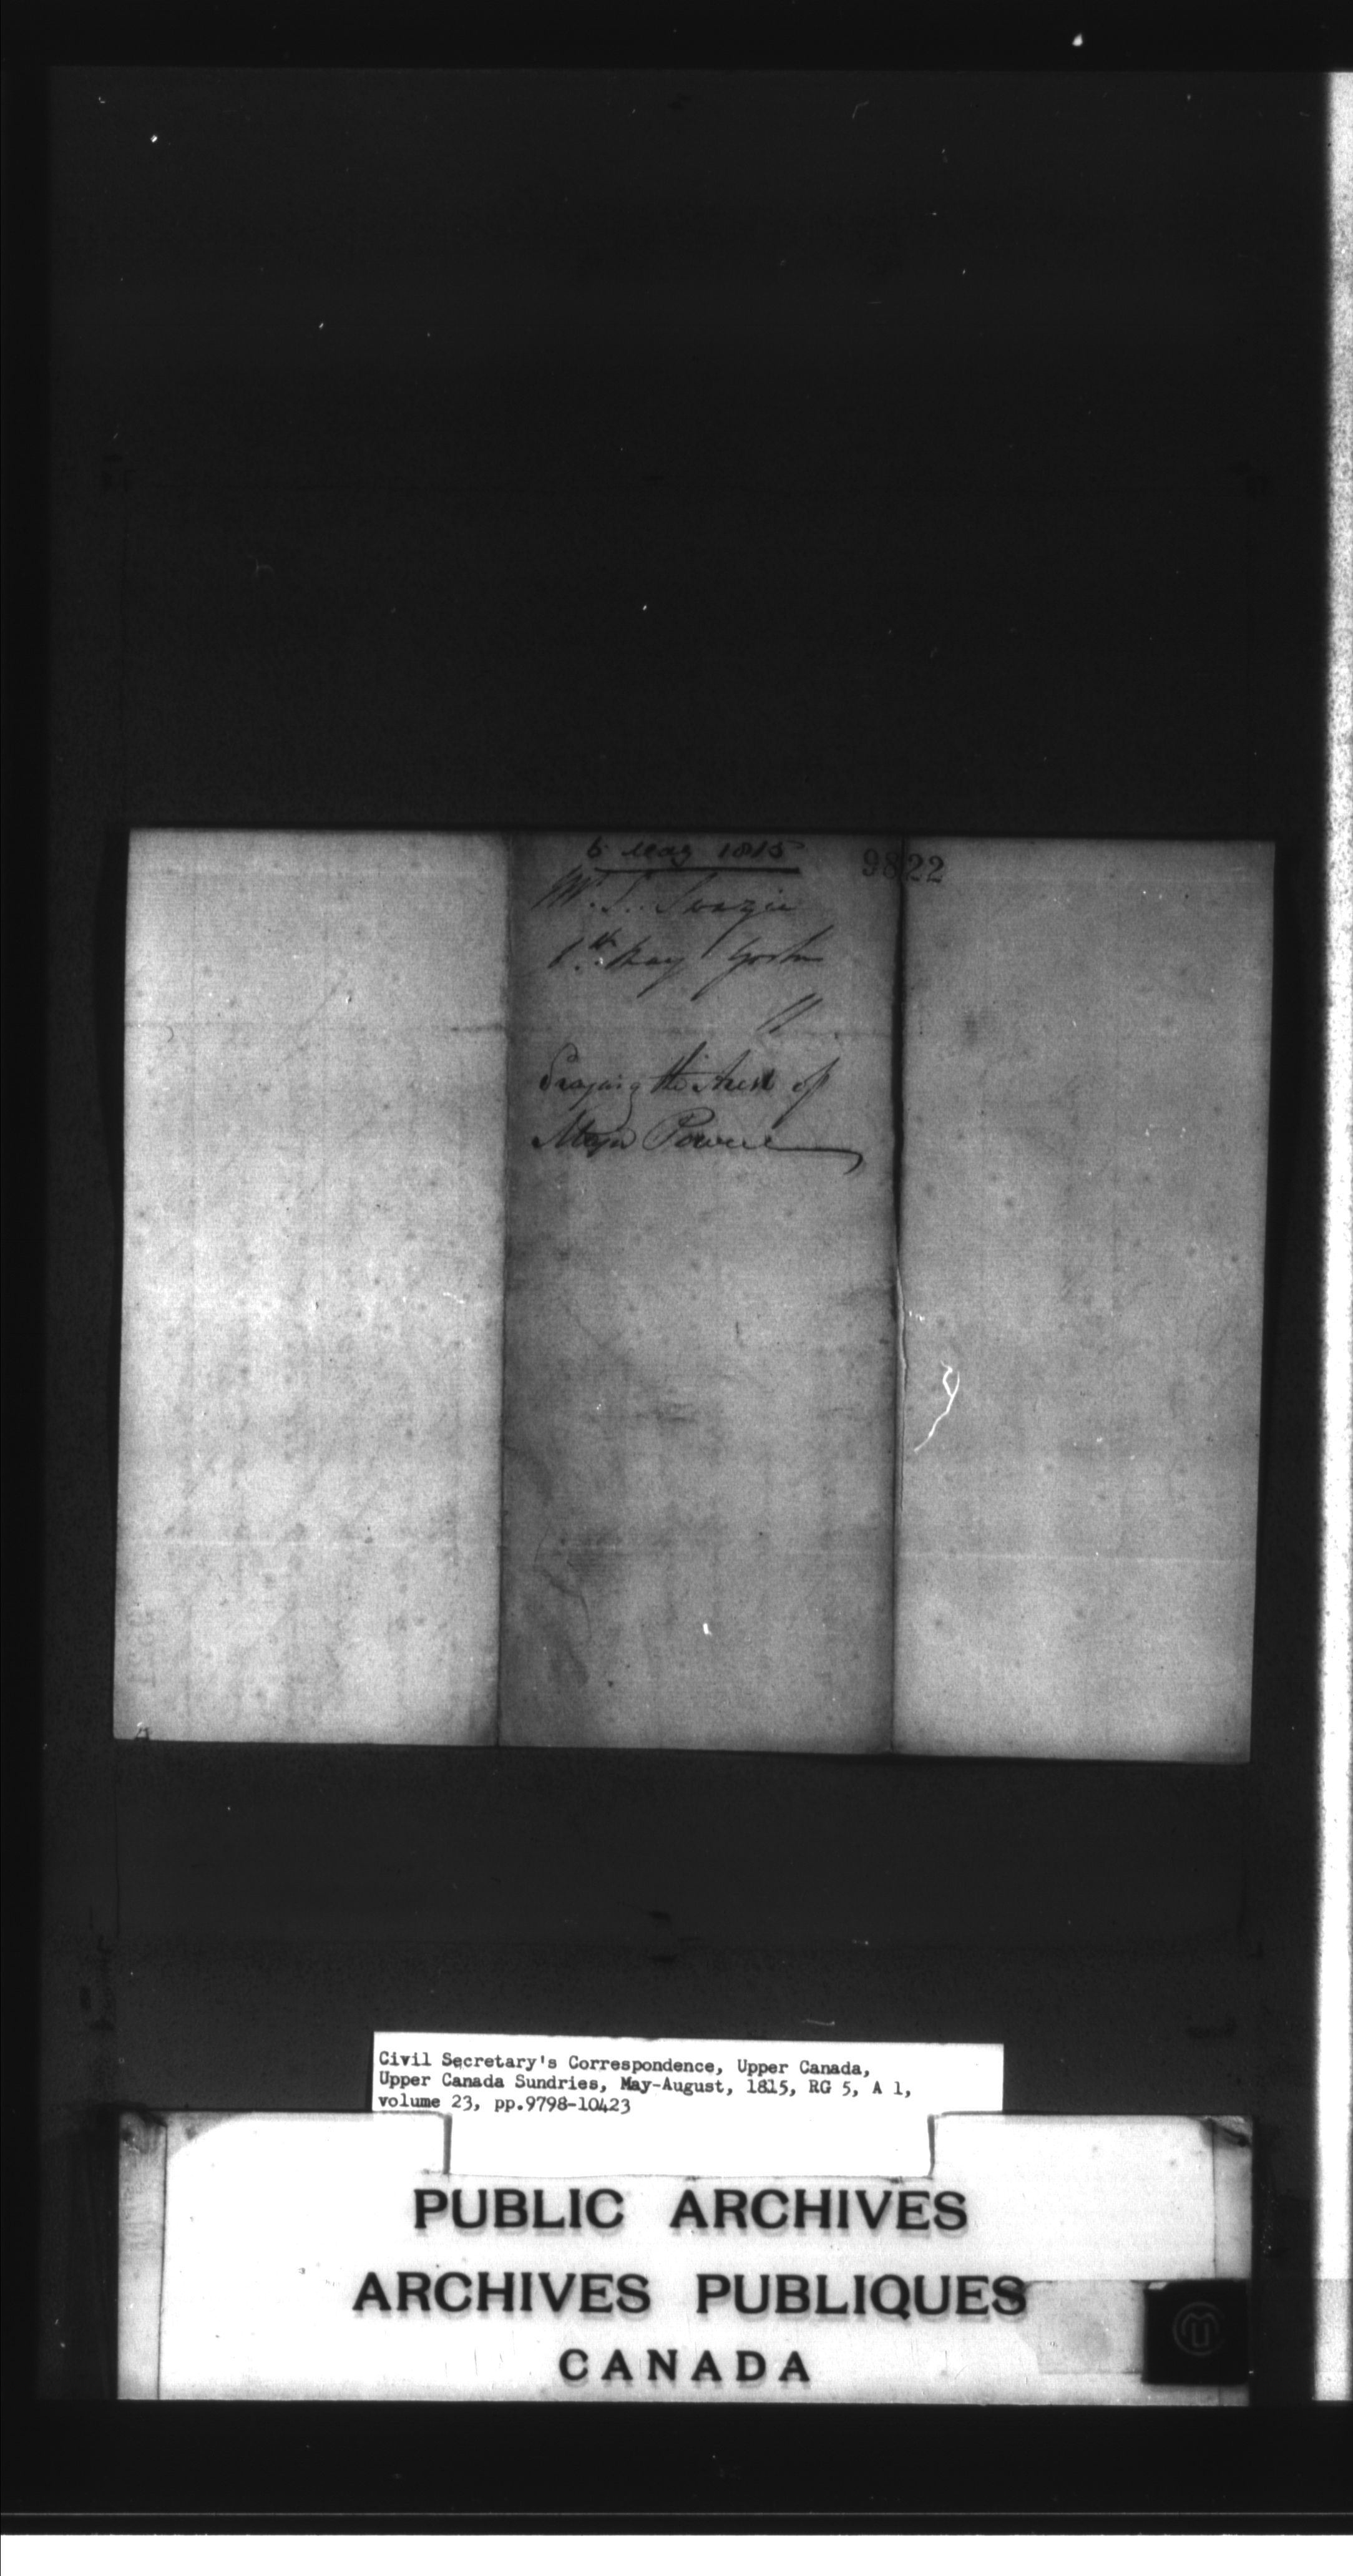 6 May 1815
9822
Mr. S. Swazie
6th. May York
Praying the Arrest of
Major Powell
Civil Secretary's Correspondence, Upper Canada,
Upper Canada Sundries, May-August, 1815, RG 5, A 1,
volume 23, pp.9798-10423
PUBLIC ARCHIVES
ARCHIVES PUBLIQUES
CANADA